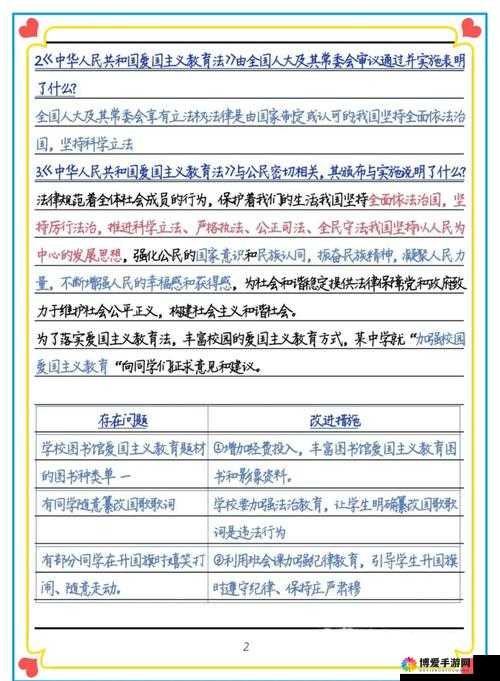 2.《中华人民共和国爱国主义教育法》由全国人大及其常委会审议通过并实施表明
了什么?
全国人大及其常委会享有立法权;法律是由国家制定或认可的;我国坚持全面依法治
国，坚持科学立法
3.《中华人民共和国爱国主义教育法》与公民密切相关，其颁布与实施说明了什么?
法律规范着全体社会成员的行为，保护着我们的生活;我国坚持全面依法治国，坚
持厉行法治，推进科学立法、严格执法、公正司法、全民守法;我国坚持以人民为
中心的发展思想，强化公民的国家意识和民族认同，振奋民族精神，凝聚人民力
量，不断增强人民的幸福感和获得感，为社会和谐稳定提供法律保障;党和政府致
力于维护社会公平正义，构建社会主义和谐社会。
为了落实爱国主义教育法，丰富校园的爱国主义教育方式，某中学就“加强校园
爱国主义教育“向同学们征求意见和建议。
存在问题 改进措施
学校图书馆爱国主义教育题材 ①增加经费投入，丰富图书馆爱国主义教育图
的图书种类单一 书和影像资料。
有同学随意篡改国歌歌词 学校要加强法治教育，让学生明确篡改国歌歌
词是违法行为
有部分同学在升国旗时嬉笑打 ②利用班会课加强纪律教育，引导学生升国旗
闹、随意走动。 时遵守纪律、保持庄严肃穆
2
博爱手游网